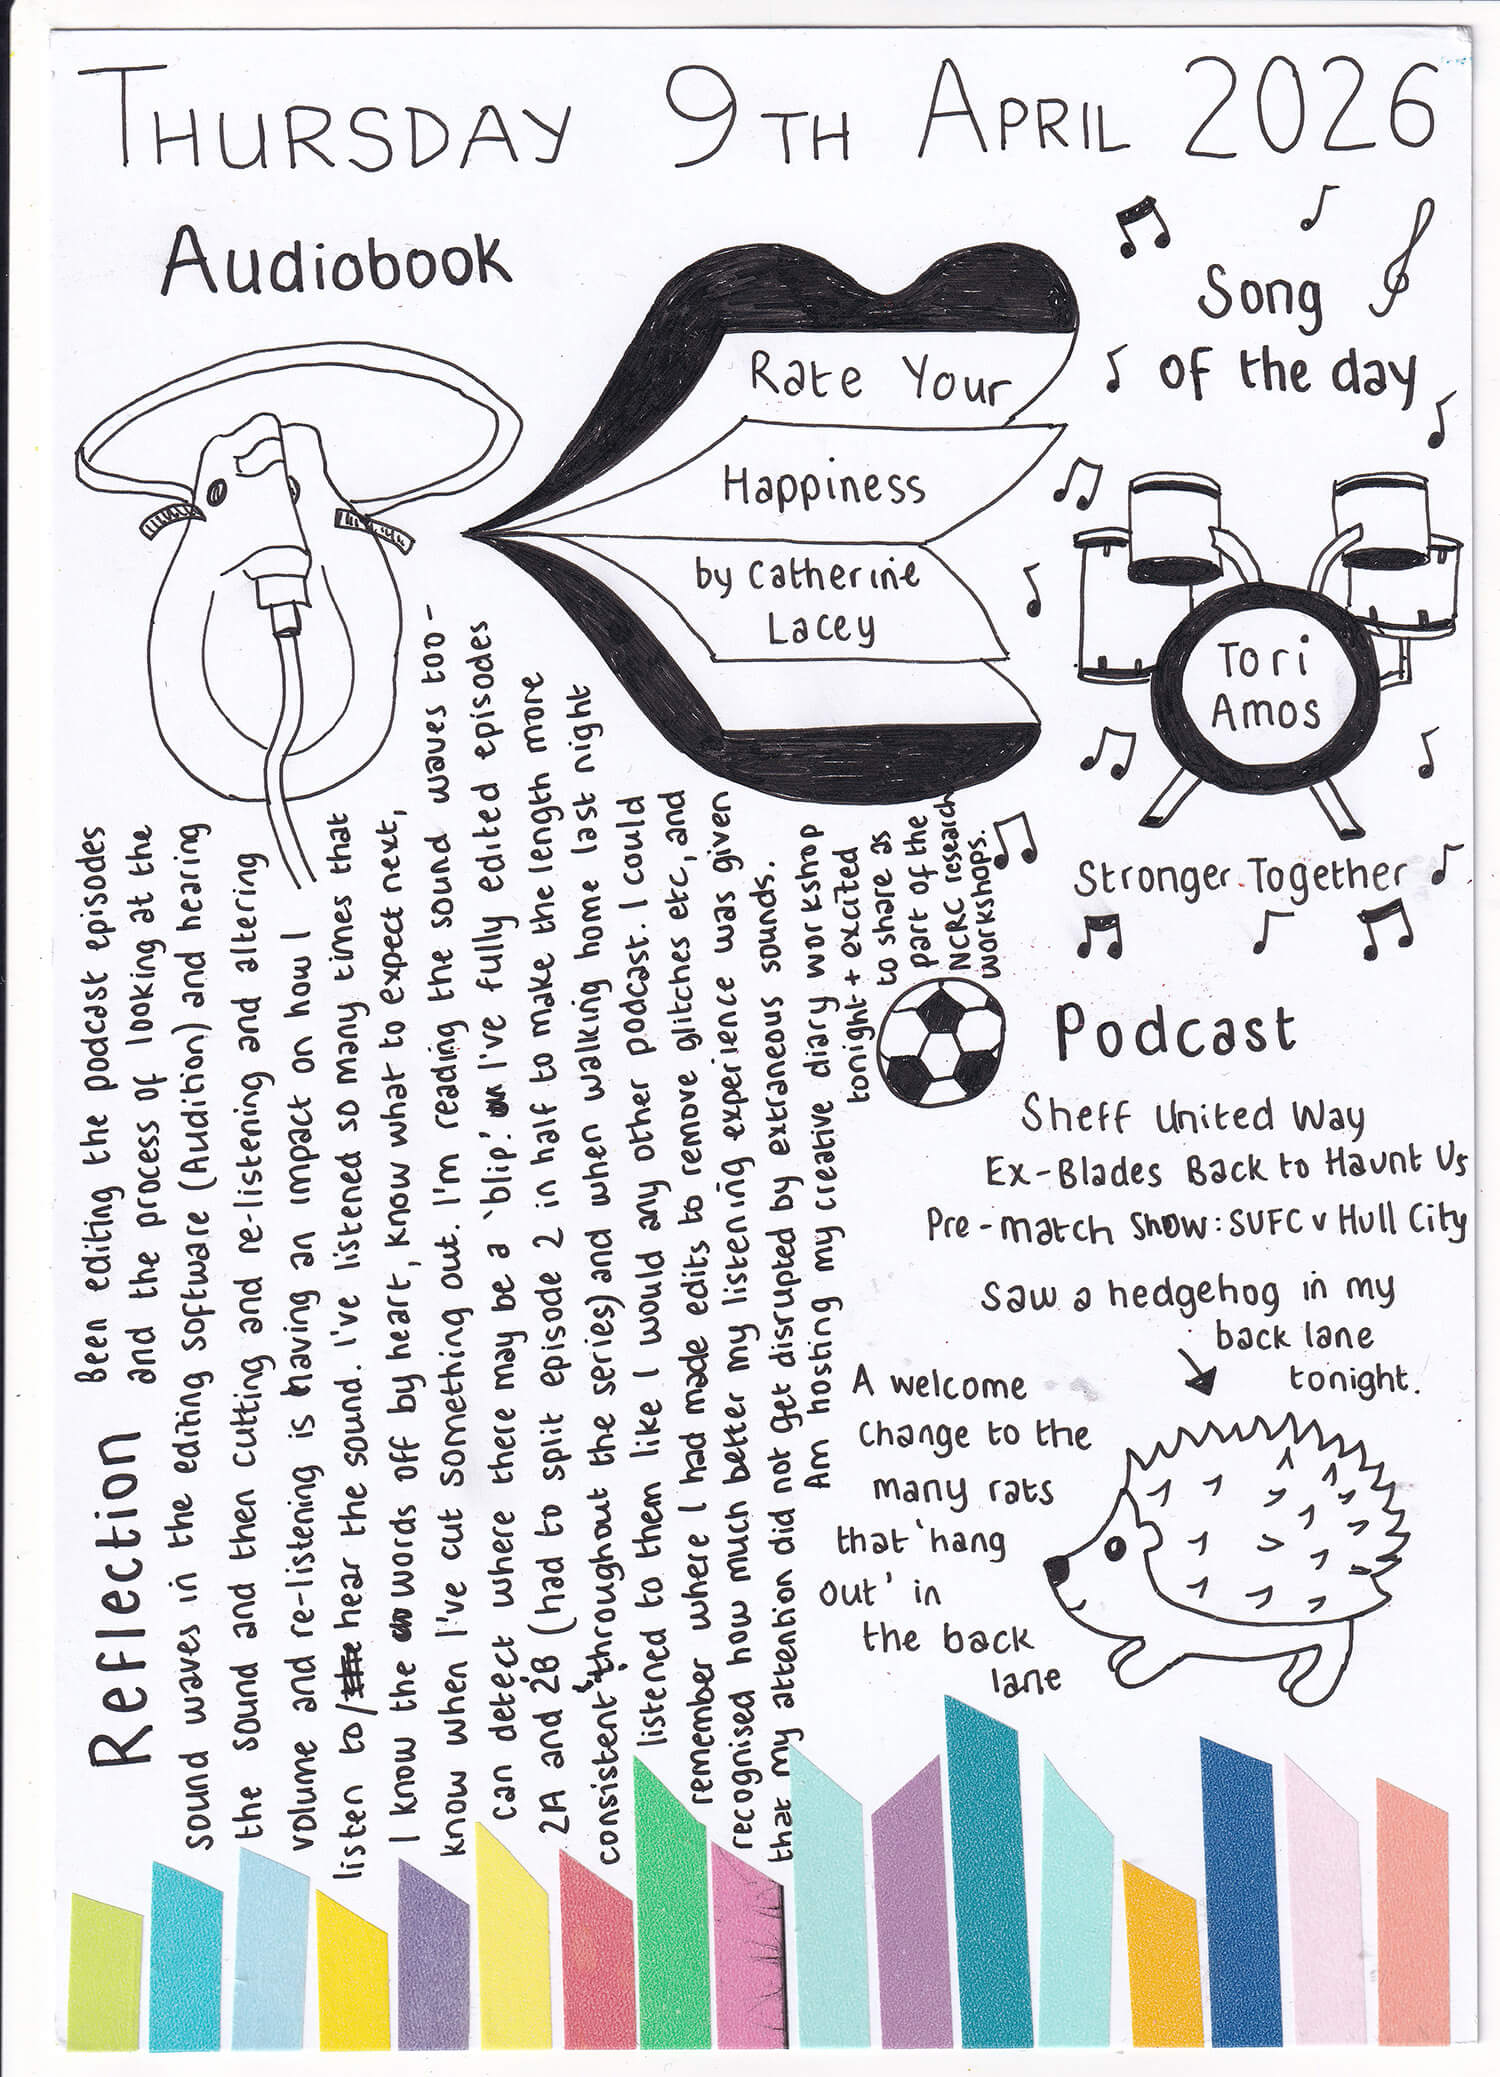 THURSDAY 9TH APRIL 2026
Audiobook
Rate Your
Happiness
by Catherine
Lacey
Song
of the day
Tori
Amos
Stronger Together
Reflection
Been editing the podcast episodes
and the process of looking at the
sound waves in the editing software (Audition) and hearing
the sound and then cutting and re-listening and altering
volume and re-listening is having an impact on how I
listen to/hear the sound. I've listened so many times that
I know the words off by heart, know what to expect next,
know when I've cut something out. I'm reading the sound waves too -
can detect where there may be a 'blip.' I've fully edited episodes
2A and 2B (had to split episode 2 in half to make the length more
consistent throughout the series) and when walking home last night
listened to them like I would any other podcast. I could
remember where I had made edits to remove glitches etc, and
recognised how much better my listening experience was given
that my attention did not get disrupted by extraneous sounds.
Am hosting my creative diary workshop
tonight + excited
to share as
part of the
NCRC research
workshops.
Podcast
Sheff United Way
Ex-Blades Back to Haunt Us
Pre-match Show: SUFC v Hull City
Saw a hedgehog in my
back lane
tonight.
A welcome
change to the
many rats
that 'hang
out' in
the back
lane